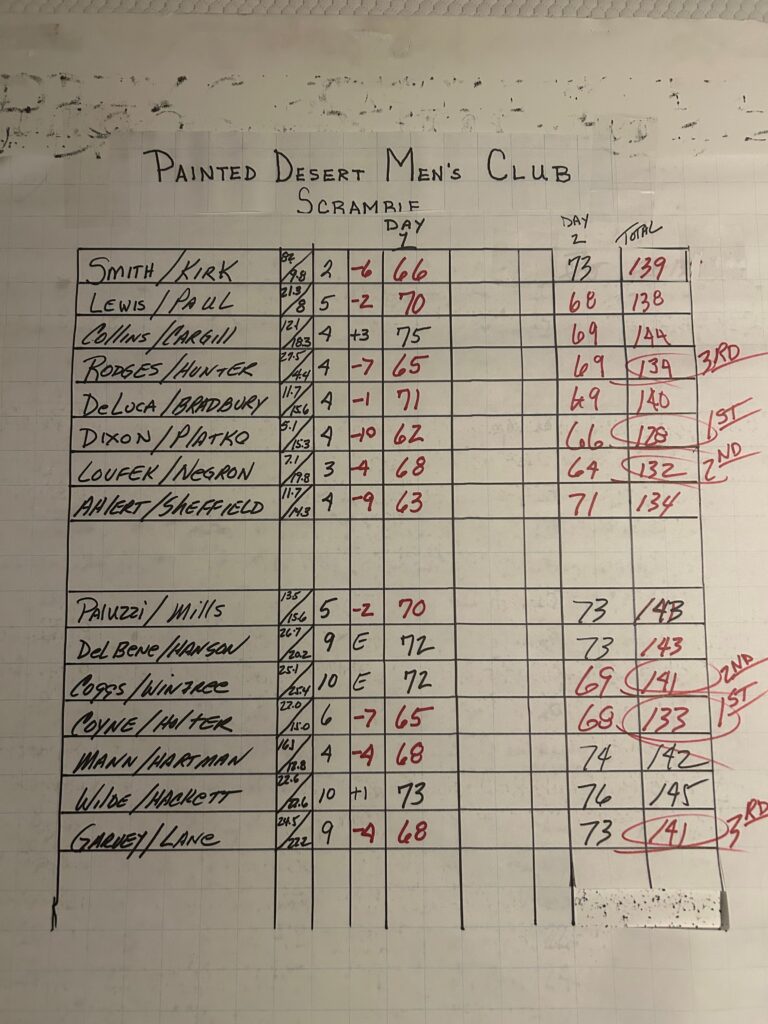 PAINTED DESERT MEN'S CLUB
SCRAMBLE
DAY 1 DAY 2 TOTAL
SMITH/KIRK 9.8 2 -6 66 73 139
LEWIS/PAUL 21.3/8 5 -2 70 68 138
COLLINS/CARGILL 12.1/18.3 4 +3 75 69 144
RODGES/HUNTER 4 -7 65 69 134 3RD
DELUCA/BRADBURY 11.7/15.6 4 -1 71 69 140
DIXON/PLATKO 5.1/15.3 4 -10 62 66 128 1ST
LOUFEK/NEGRON 7.1/19.8 3 -4 68 64 132 2ND
AHLERT/SHEFFIELD 11.7/14.3 4 -9 63 71 134
PALUZZI/MILLS 13.5/15.6 5 -2 70 73 143
DELBENE/HANSON 26.7/20.2 9 E 72 73 143
COGGS/WINTREE 25.1/25.4 10 E 72 69 141 2ND
COYNE/HOLTER 15.0 6 -7 65 68 133 1ST
MANN/HARTMAN 4 -4 68 74 142
WILDE/HACKETT 22.6 10 +1 73 76 145
GARVEY/LANE 24.5/22.2 9 -4 68 73 141 3RD